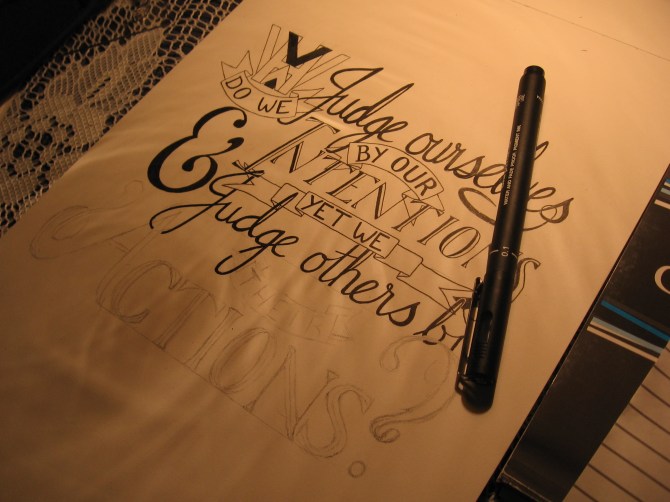 DO WE
Judge ourselves
BY OUR
INTENTIONS
& YET WE
Judge others by
ACTIONS?
0.1